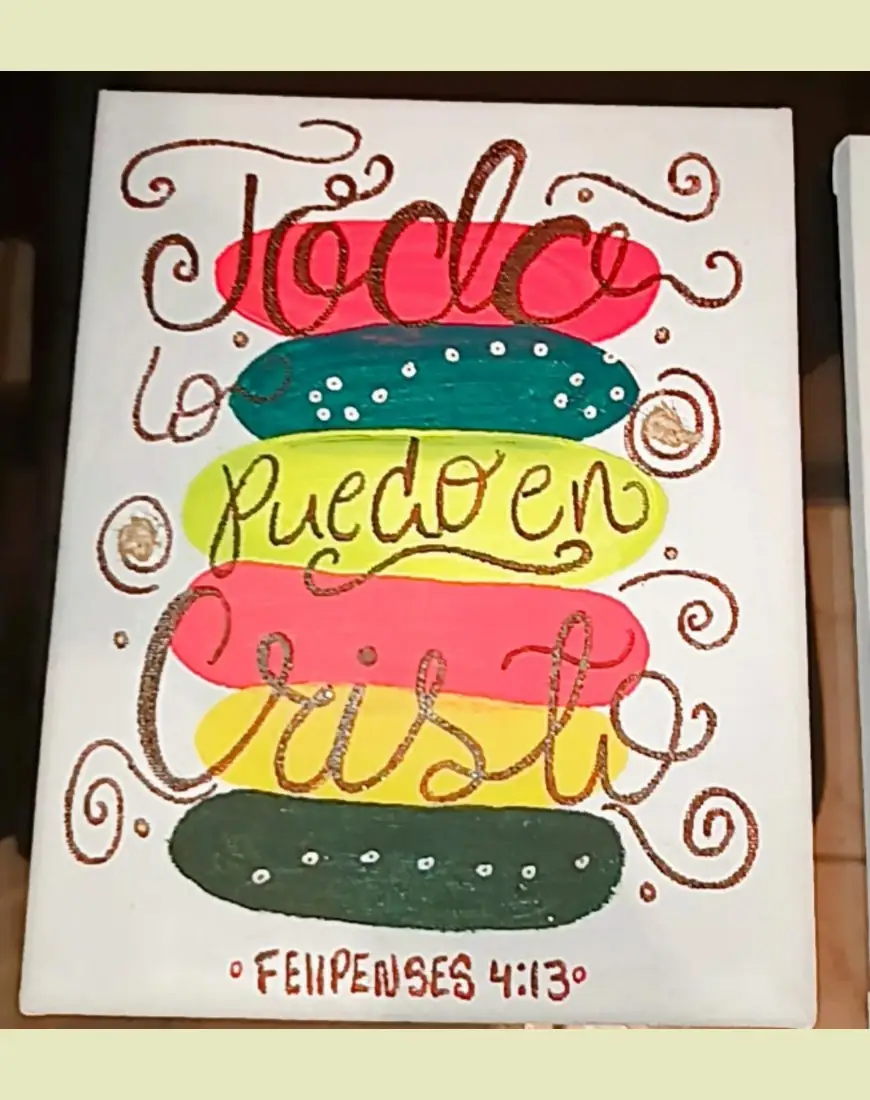 Todo
lo
puedo en
Cristo
FElIPENSES 4:13